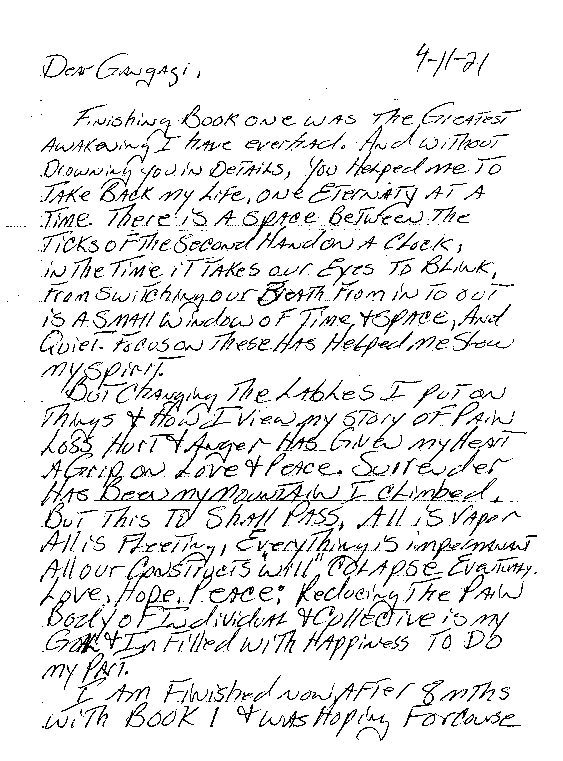 4-11-21
Dear Gangagi,
Finishing Book one was the Greatest
Awakening I have ever had. And without
Drowning you in Details, You Helped me To
Take Back my Life, one Eternaty at a
Time. There is a space Between The
Ticks of the Second Hand on a Clock,
in the Time it Takes our Eyes To Blink,
From switching our Breath From in To out
is a small window of Time, & space, And
Quiet. Focus on These Has Helped me Slow
my spirit.
But Changing The Lables I put on
Things & How I view my story of Pain
Loss Hurt & Anger Has Given my Heart
A Grip on Love & Peace. Surrender
Has Been my mountain I climbed.
But This To Shall Pass, All is Vapor
All is Fleeting, Everything is impermanent
All our Constructs will "Colapse Eventualy.
Love, Hope, Peace; Reducing The Pain
Body of Individual & Collective is my
Goal & In Filled with Happiness To Do
my Part.
I Am Finished now After 8 mths
with Book 1 & was Hoping For course